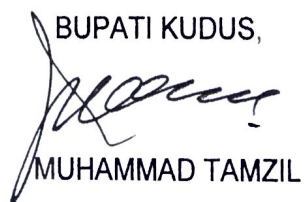 BUPATI KUDUS,
MUHAMMAD TAMZIL